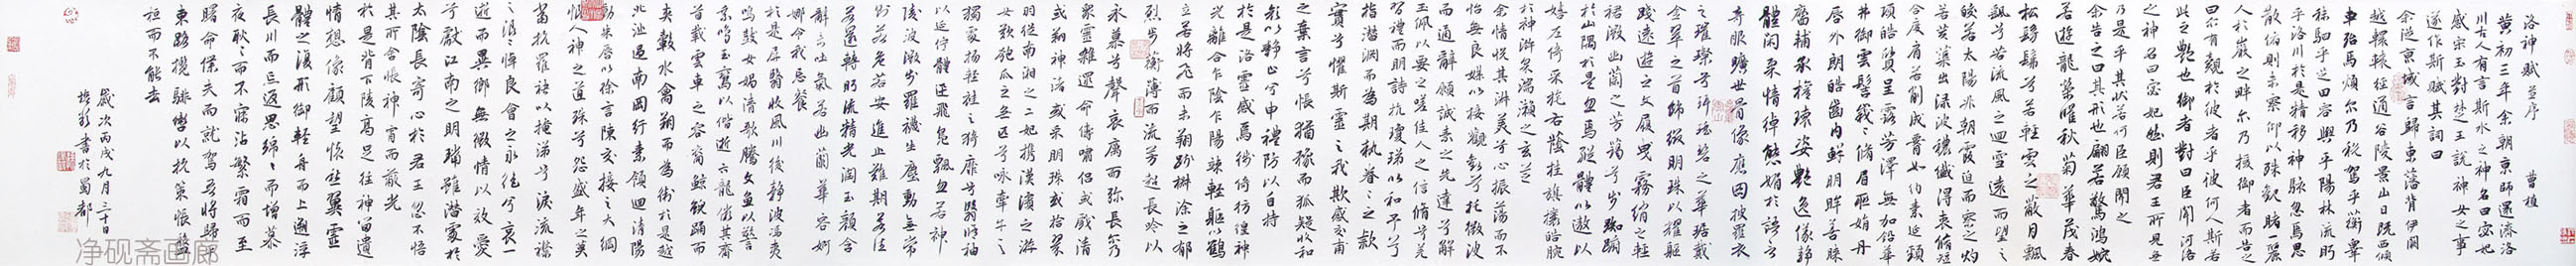 洛神賦并序 曹植
黄初三年余朝京師還濟洛
川古人有言斯水之神名曰宓妃
感宋玉對楚王說神女之事
遂作斯賦其詞曰
余從京域言歸東藩背伊闕
越轘轅經通谷陵景山日既西傾
車殆馬煩尔乃税駕乎蘅皋
秣駟乎芝田容與乎陽林流眄
乎洛川於是精移神駭忽焉思
散俯則未察仰以殊觀睹一麗
人於巖之畔尔乃援御者而告之
曰尔有覿於彼者乎彼何人斯若
此之艷也御者對曰臣聞河洛
之神名曰宓妃然則君王所見無
乃是乎其状若何臣願聞之
余告之曰其形也翩若驚鴻婉
若遊龍榮曜秋菊華茂春
松髣髴兮若輕雲之蔽月飄
飖兮若流風之迴雪遠而望之
皎若太陽升朝霞迫而察之灼
若芙蕖出渌波穠纖得衷脩短
合度肩若削成腰如約素延頸
項皓質呈露芳澤無加鉛華
弗御雲髻峩々脩眉聯娟丹
唇外朗皓齒内鮮明眸善睞
靨輔承權瓌姿艷逸儀静
體閑柔情綽態媚於語言
奇服曠世骨像應圖披羅衣
之璀璨兮珥瑶碧之華琚戴
金翠之首飾綴明珠以耀軀
踐遠遊之文履曳霧綃之輕
裾微幽蘭之芳藹兮步踟躕
於山隅於是忽焉縱體以遨以
嬉左倚采旄右蔭桂旗攘皓腕
於神滸兮采湍瀨之玄芝
余情悦其淑美兮心振蕩而不
怡無良媒以接歡兮托微波
而通辭願誠素之先達兮解
玉佩以要之嗟佳人之信脩兮羌
習禮而明詩抗瓊珶以和予兮
指潛淵而為期執眷々之款
實兮懼斯靈之我欺感交甫
之棄言兮悵猶豫而狐疑收和
顔以静志兮申禮防以自持
於是洛靈感焉徙倚彷徨神
光離合乍陰乍陽竦輕軀以鶴
立若將飛而未翔踐椒塗之郁
烈步蘅薄而流芳超長吟以
永慕兮聲哀厲而彌長尔乃
衆靈雜遝命儔嘯侣或戲清流
或翔神渚或采明珠或拾翠
羽從南湘之二妃携漢濱之游
女歎匏瓜之無匹兮詠牽牛之
獨處揚輕袿之猗靡兮翳脩袖
以延佇體迅飛鳧飄忽若神
陵波微步羅襪生塵動無常
則若危若安進止難期若往
若還轉眄流精光潤玉顔含
辭未吐氣若幽蘭華容婀
娜令我忘餐
於是屏翳收風川后静波馮夷
鳴鼓女媧清歌騰文魚以警
乘鳴玉鸞以偕逝六龍儼其齊
首載雲車之容裔鯨鯢踴而
夾轂水禽翔而為衛於是越
北沚過南岡紆素領迴清陽
動朱唇以徐言陳交接之大綱
恨人神之道殊兮怨盛年之莫
當抗羅袂以掩涕兮淚流襟
之浪々悼良會之永絶兮哀一
逝而異鄉無微情以效愛
兮獻江南之明璫雖潛處於
太陰長寄心於君王忽不悟
其所舍悵神宵而蔽光
於是背下陵高足往神留遺
情想像顧望懷愁冀靈
體之復形御輕舟而上遡浮
長川而忘返思綿々而增慕
夜耿々而不寐沾繁霜而至
曙命僕夫而就駕吾將歸乎
東路攬騑轡以抗策悵盤
桓而不能去
歲次丙戌年九月三十日
書於蜀都
净砚斋画廊